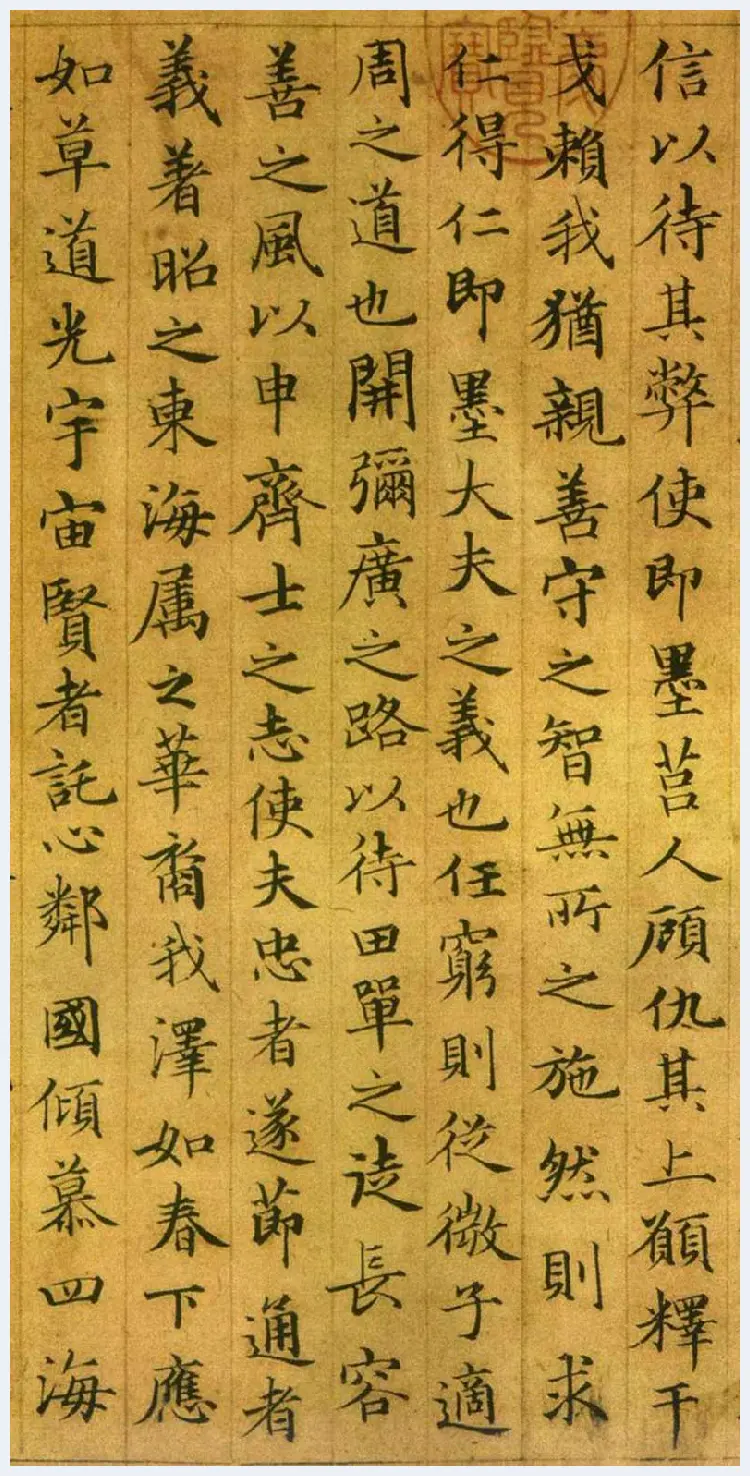 信以待其弊使即墨莒人顧仇其上願釋干
戈賴我猶親善守之智無所之施然則求
仁得仁即墨大夫之義也任窮則従微子適
周之道也開彌廣之路以待田單之徒長容
善之風以申齊士之志使夫忠者遂節通者
義著昭之東海属之華裔我澤如春下應
如草道光宇宙賢者託心鄰國傾慕四海